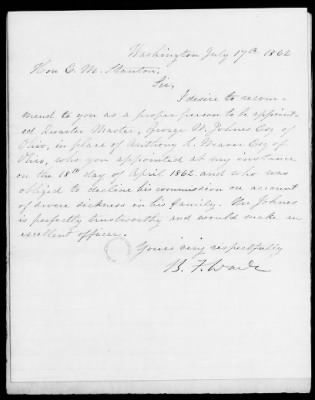 Washington July 17th 1862
Hon E. M. Stanton,
Sir,
I desire to recom-
mend to you as a proper person to be appoint-
ed Quarter Master, George W. Johnes Esq of
Ohio, in place of Anthony L. Esq of
Ohio, who you appointed at my instance
on the 18th day of April 1862 and who was
obliged to decline his commission on account
of severe sickness in his family. Mr Johnes
is perfectly trustworthy and would make an
excellent officer.
Yours very respectfully
B. F. Wade